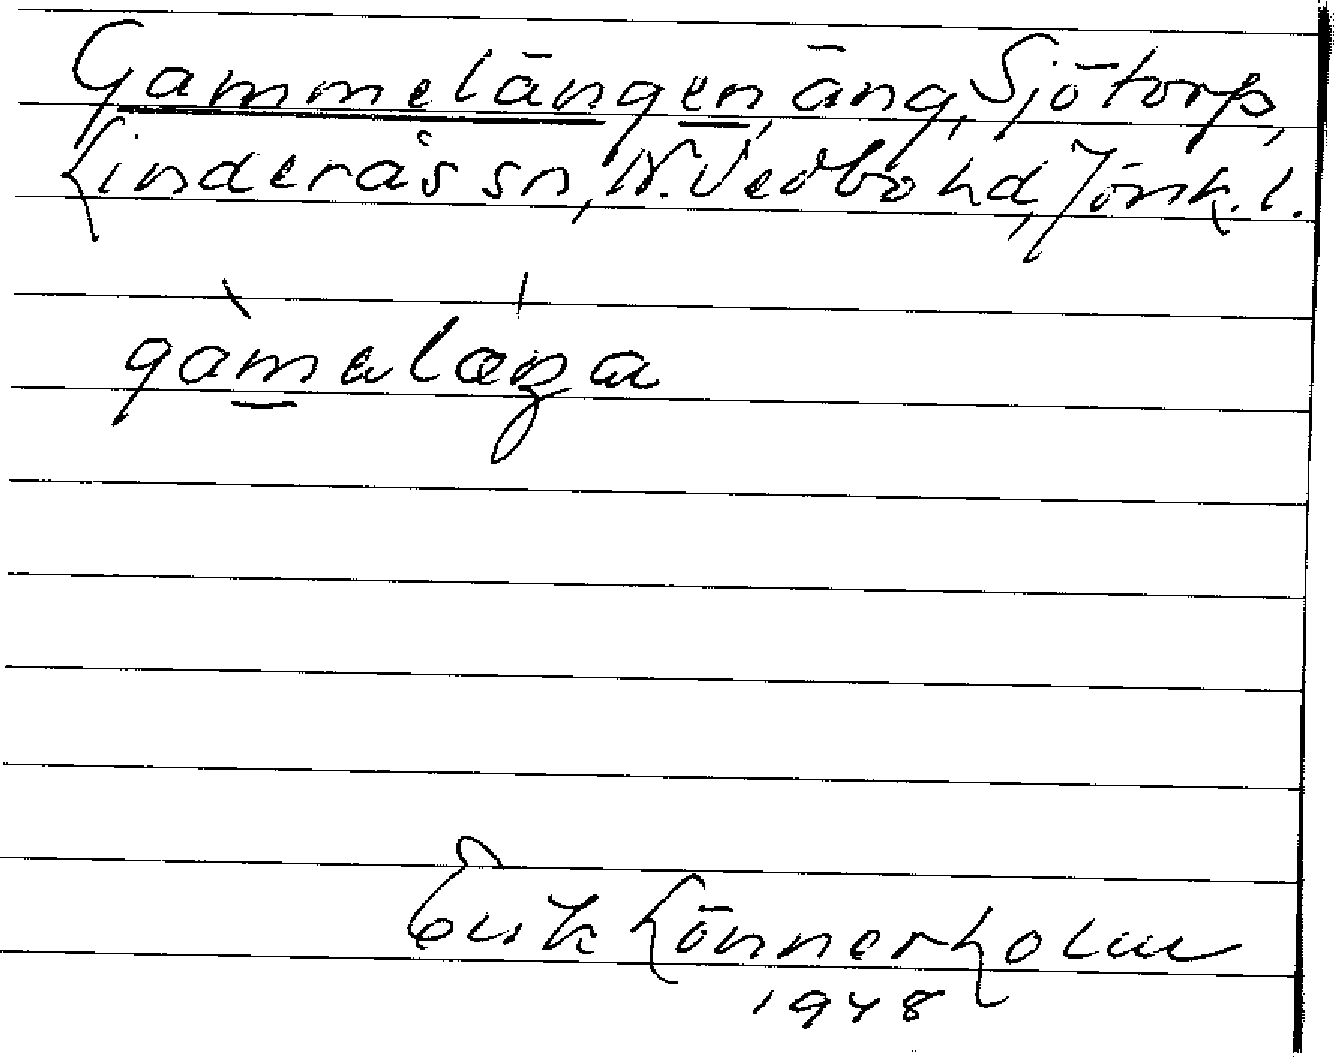 Gammelängen, äng, Sjötorp,
Linderås sn, N. Vedbo hd, Jönk. l.
gàmalæŋa
Erik Lönnerholm
1948